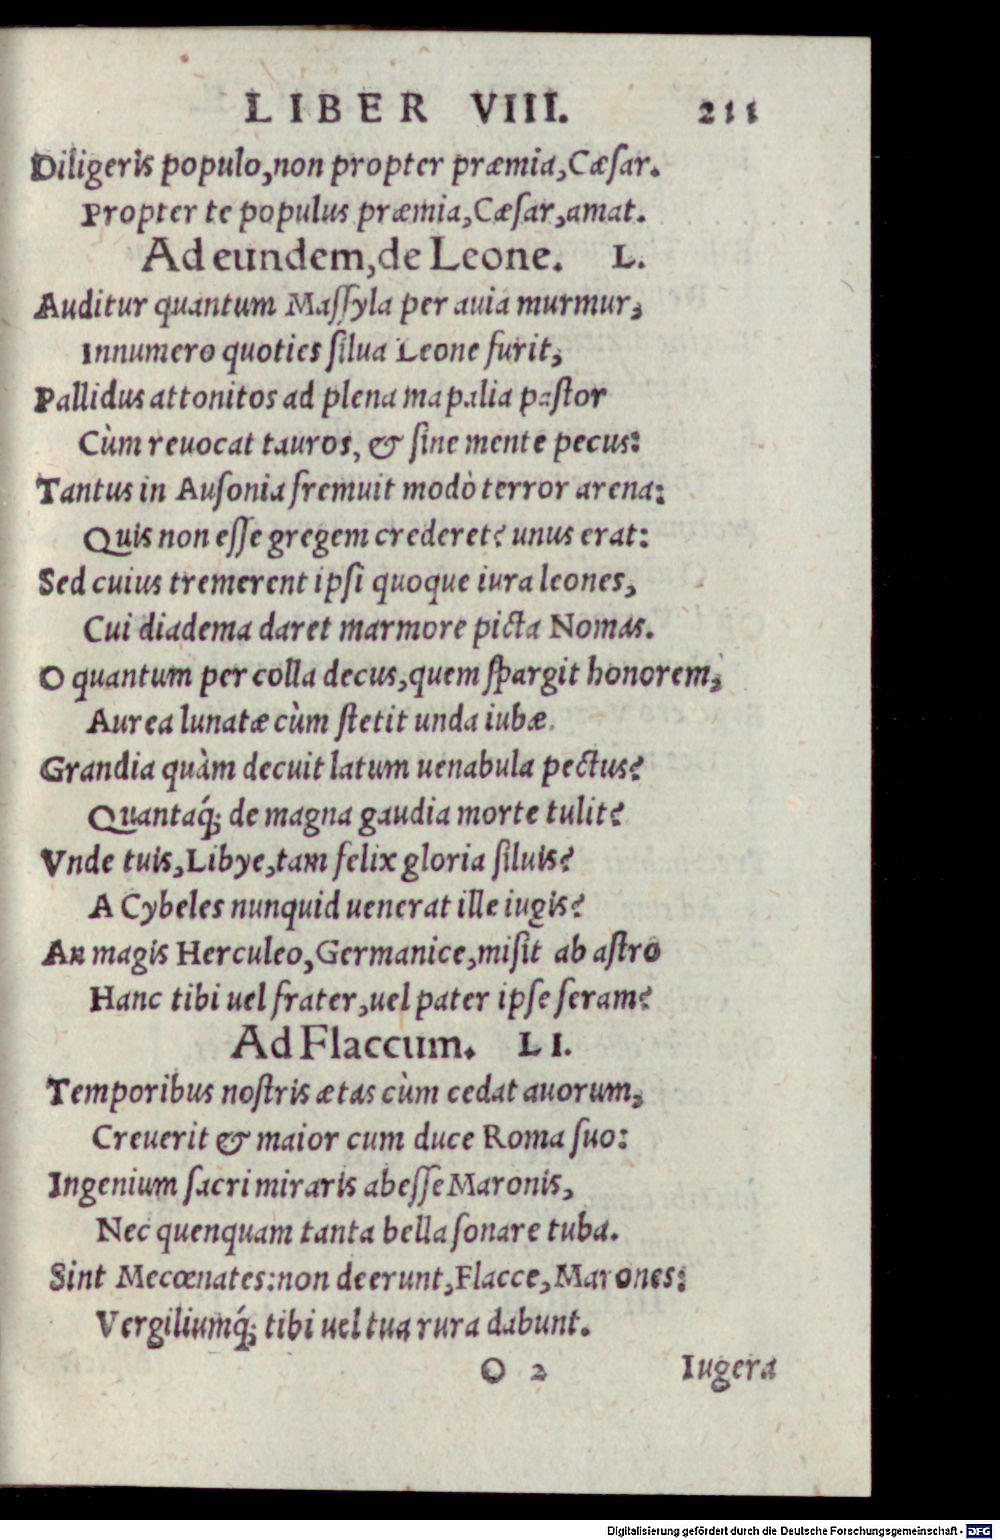 LIBER VIII. 211
Diligeris populo, non propter præmia, Cæſar.
Propter te populus præmia, Cæſar, amat.
Ad eundem, de Leone. L.
Auditur quantum Maſſyla per auia murmur,
Innumero quoties ſilua Leone furit,
Pallidus attonitos ad plena mapalia paſtor
Cùm reuocat tauros, & ſine mente pecus:
Tantus in Auſonia fremuit modò terror arena:
Quis non eſſe gregem crederet? unus erat:
Sed cuius tremerent ipſi quoque iura leones,
Cui diadema daret marmore picta Nomas.
O quantum per colla decus, quem ſpargit honorem,
Aurea lunatæ cùm ſtetit unda iubæ.
Grandia quàm decuit latum uenabula pectus?
Quantaq́; de magna gaudia morte tulit?
Vnde tuis, Libye, tam felix gloria ſiluis?
A Cybeles nunquid uenerat ille iugis?
An magis Herculeo, Germanice, miſit ab aſtro
Hanc tibi uel frater, uel pater ipſe feram?
Ad Flaccum. LI.
Temporibus noſtris ætas cùm cedat auorum,
Creuerit & maior cum duce Roma ſuo:
Ingenium ſacri miraris abeſſe Maronis,
Nec quenquam tanta bella ſonare tuba.
Sint Mecœnates: non deerunt, Flacce, Marones:
Vergiliumq́; tibi uel tua rura dabunt.
O 2 Iugera
Digitalisierung gefördert durch die Deutsche Forschungsgemeinschaft - DFG